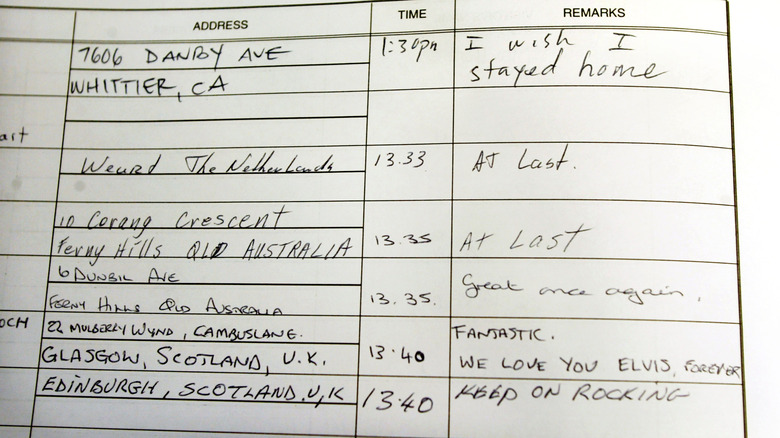 ADDRESS TIME REMARKS
7606 DANBY AVE 1:30pm I wish I
WHITTIER, CA stayed home
Weurd The Netherlands 13.33 AT Last.
10 Corang Crescent
Ferny Hills QLD AUSTRALIA 13.35 At Last
6 DUNBIL AVE
FERNY HILLS QLD AUSTRALIA 13.35. Great once again.
OCH 22 MULBERRY WYND, CAMBUSLANG. FANTASTIC.
GLASGOW, SCOTLAND, U.K. 13.40 WE LOVE YOU ELVIS, FOREVER
EDINBURGH, SCOTLAND.U,K 13.40 KEEP ON ROCKING